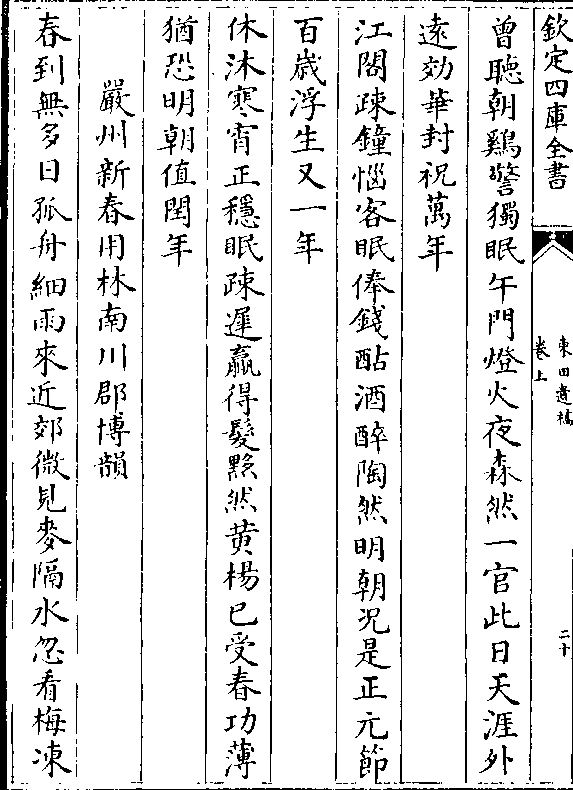 欽定四庫全書
東田遺稿
卷上
二十
曾聽朝鷄警獨眠午門燈火夜森然一官此日天涯外
遠効華封祝萬年
江閣疎鐘惱客眠俸錢酤酒醉陶然明朝况是正元節
百歳浮生又一年
休沐寒宵正穩眠疎遲贏得髮黟然黄楊已受春功薄
猶恐明朝值閏年
嚴州新春用林南川郡博韻
春到無多日孤舟細雨來近郊微見麥隔水忽看梅凍